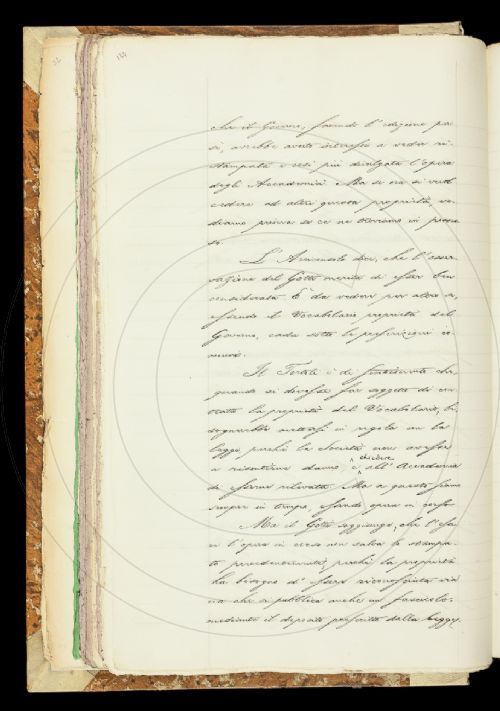 che il Governo, facendo l'edizione per
sì, avrebbe avuto interesse a veder ri-
stampata e resa più divulgata l'opera
degli Accademici. Ma se ora si vuol
cedere ad altri questa proprietà, ve-
diamo prima se ce ne troviamo in posses-
so.
L'Arcivescolo dice, che l'osser-
vazione del Gotti merita di esser ben
considerata. È da vedere per altro se,
essendo il Vocabolario proprietà del
Governo, cada sotto le prescrizioni co-
muni.
Il Tortoli è di sentimento che,
quando si dovesse far soggetto di con-
tratto la proprietà del Vocabolario, bi-
sognerebbe mettersi in regola con la
legge, perchè la Società non avesse
a risentirne danno, e chiedere all'Accademia
di esserne rilevata. Ma a questo siamo
sempre in tempo, essendo opera in corso.
Ma il Gotti soggiunge, che l'esse-
re l'opera in corso non salva lo stampa-
to precedentemente, perchè la proprietà
ha bisogno d'essere riconosciuta via
via che si pubblica anche un fascicolo,
mediante il deposito prescritto dalla legge.